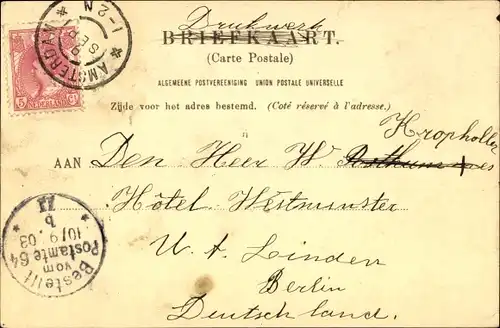 Drukwerk
BRIEFKAART.
(Carte Postale)
ALGEMEENE POSTVEREENIGING UNION POSTALE UNIVERSELLE
Zijde voor het adres bestemd. (Coté réservé à l'adresse.)
5 NEDERLAND Ct
AMSTERDAM
1-2 N
Kropholler
AAN Den Heer W.
Hôtel Westminster
U. t. Linden
Berlin
Deutschland.
Bestellt
vom
Postamte 64
10/9. 03
b